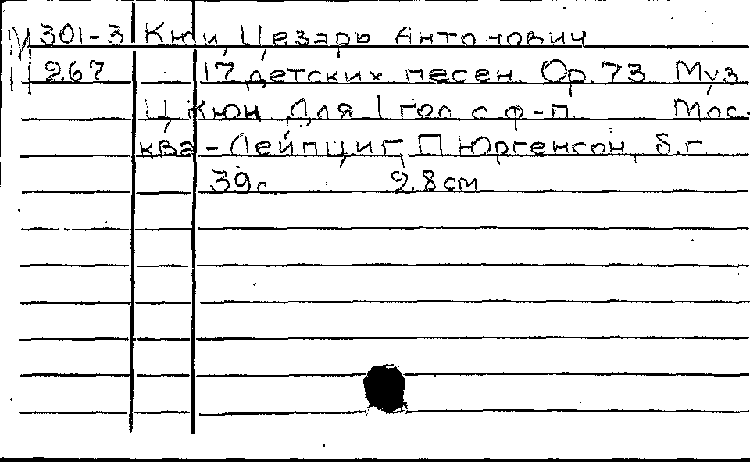 М 301-3 Кюи, Цезарь Антонович
267 17 детских песен. Op. 73 Муз.
Ц. Кюи. Для 1 гол. с ф-п. Мос-
ква - Лейпциг, П. Юргенсон, б.г.
39 с. 28 см